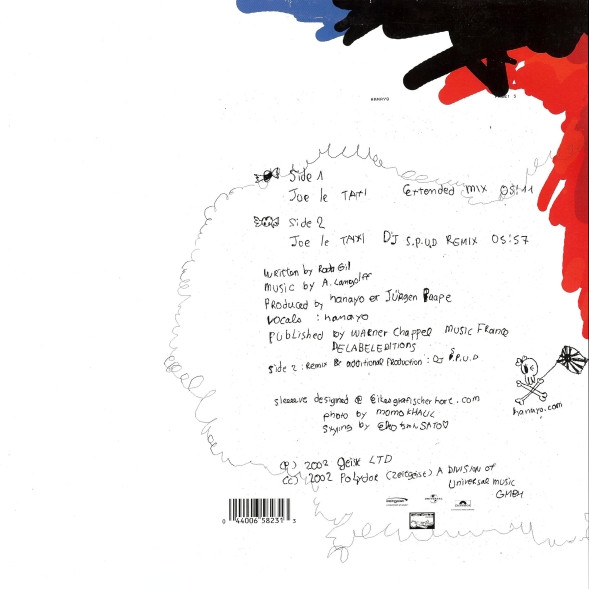 HANAYO
Side 1
Joe le TAXI Extended mix 05:11
Side 2
Joe le TAXI DJ S.P.U.D REMIX 05:57
Written by Roda Gil
MUSIC by A. Langolff
PRODUCED by hanayo et Jürgen Paape
Vocals : hanayo
PUbLISHED by WARNER Chappel MUSIC France
DELABELEDITIONS
Side 2 : Remix & additional Production : DJ S.P.U.D
sleeeve designed @
photo by momo KHALIL
Styling by SATO
hanayo.com
(P) 2002 geist LTD
(C) 2002 Polydor (zeitgeist) A DIVISION of
Universal music
GMBH
0 44006 58231 3